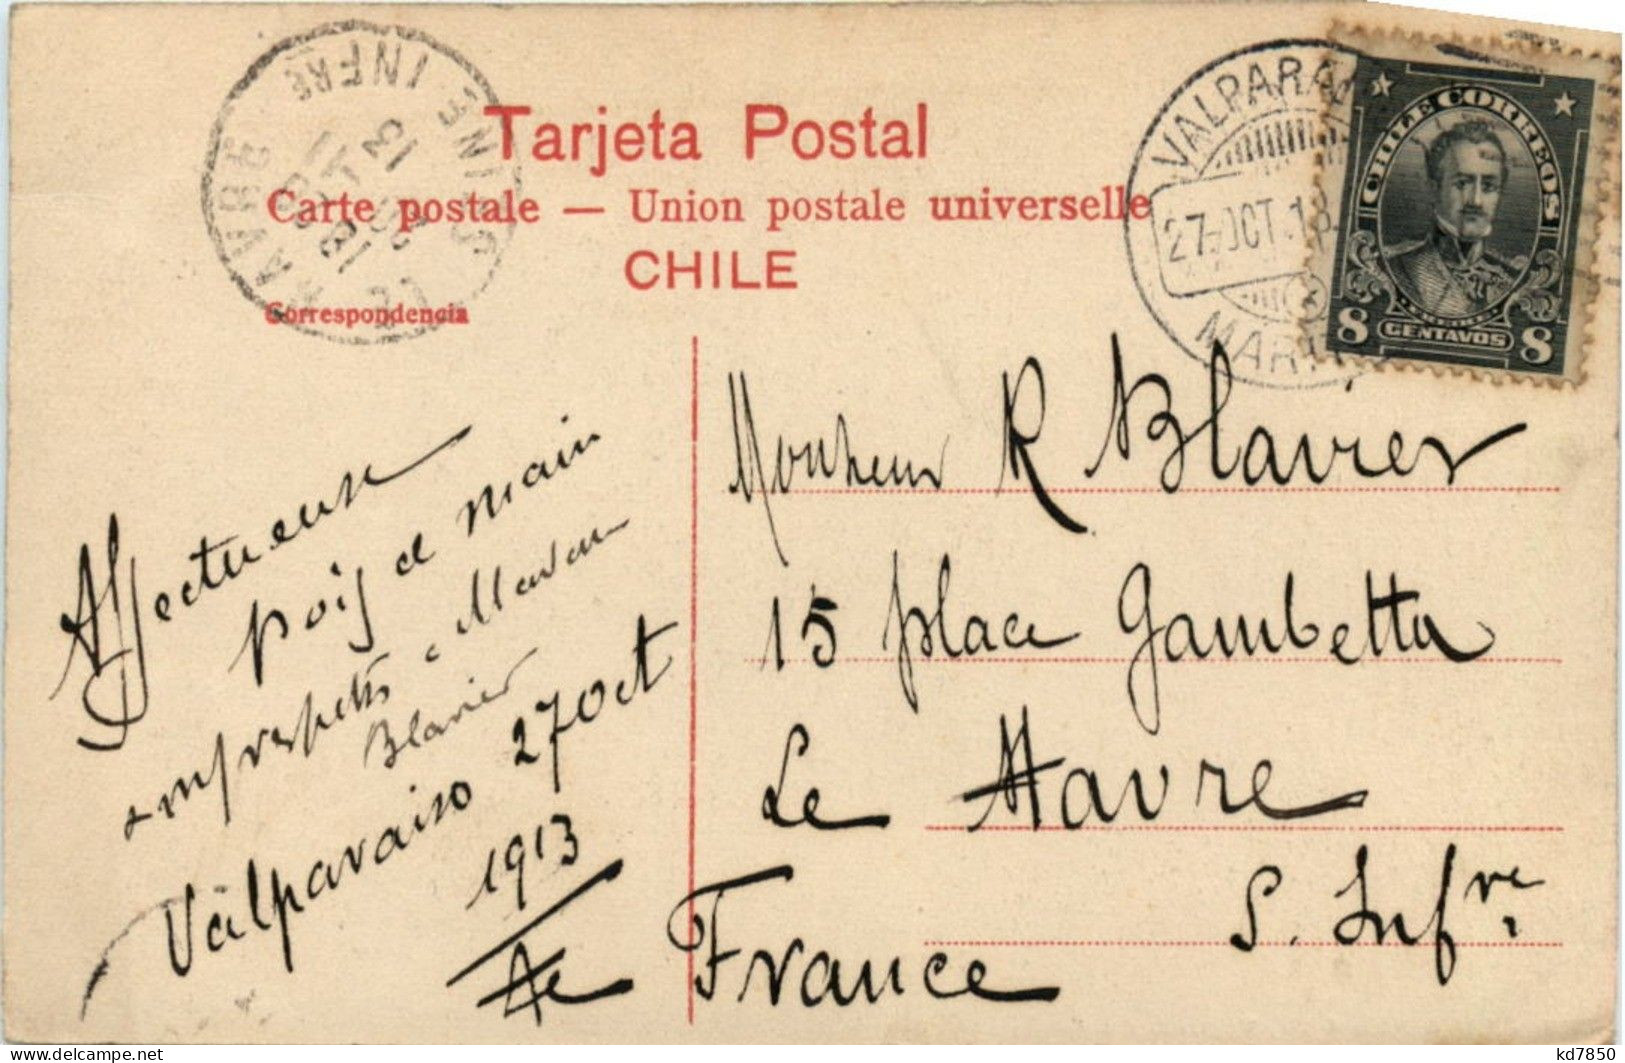 Tarjeta Postal
Carte postale — Union postale universelle
CHILE
Correspondencia
LE HAVRE
SEINE INFRE
VALPARA
27 OCT. 13
MARIT
CHILE CORREOS
8 CENTAVOS 8
Affectueuse
poig de main
respects à Madame
Blavier
Valparaiso 27 Oct
1913
Monsieur R Blavier
15 place Gambetta
Le Havre
S. Infre
France
delcampe.net
kd7850